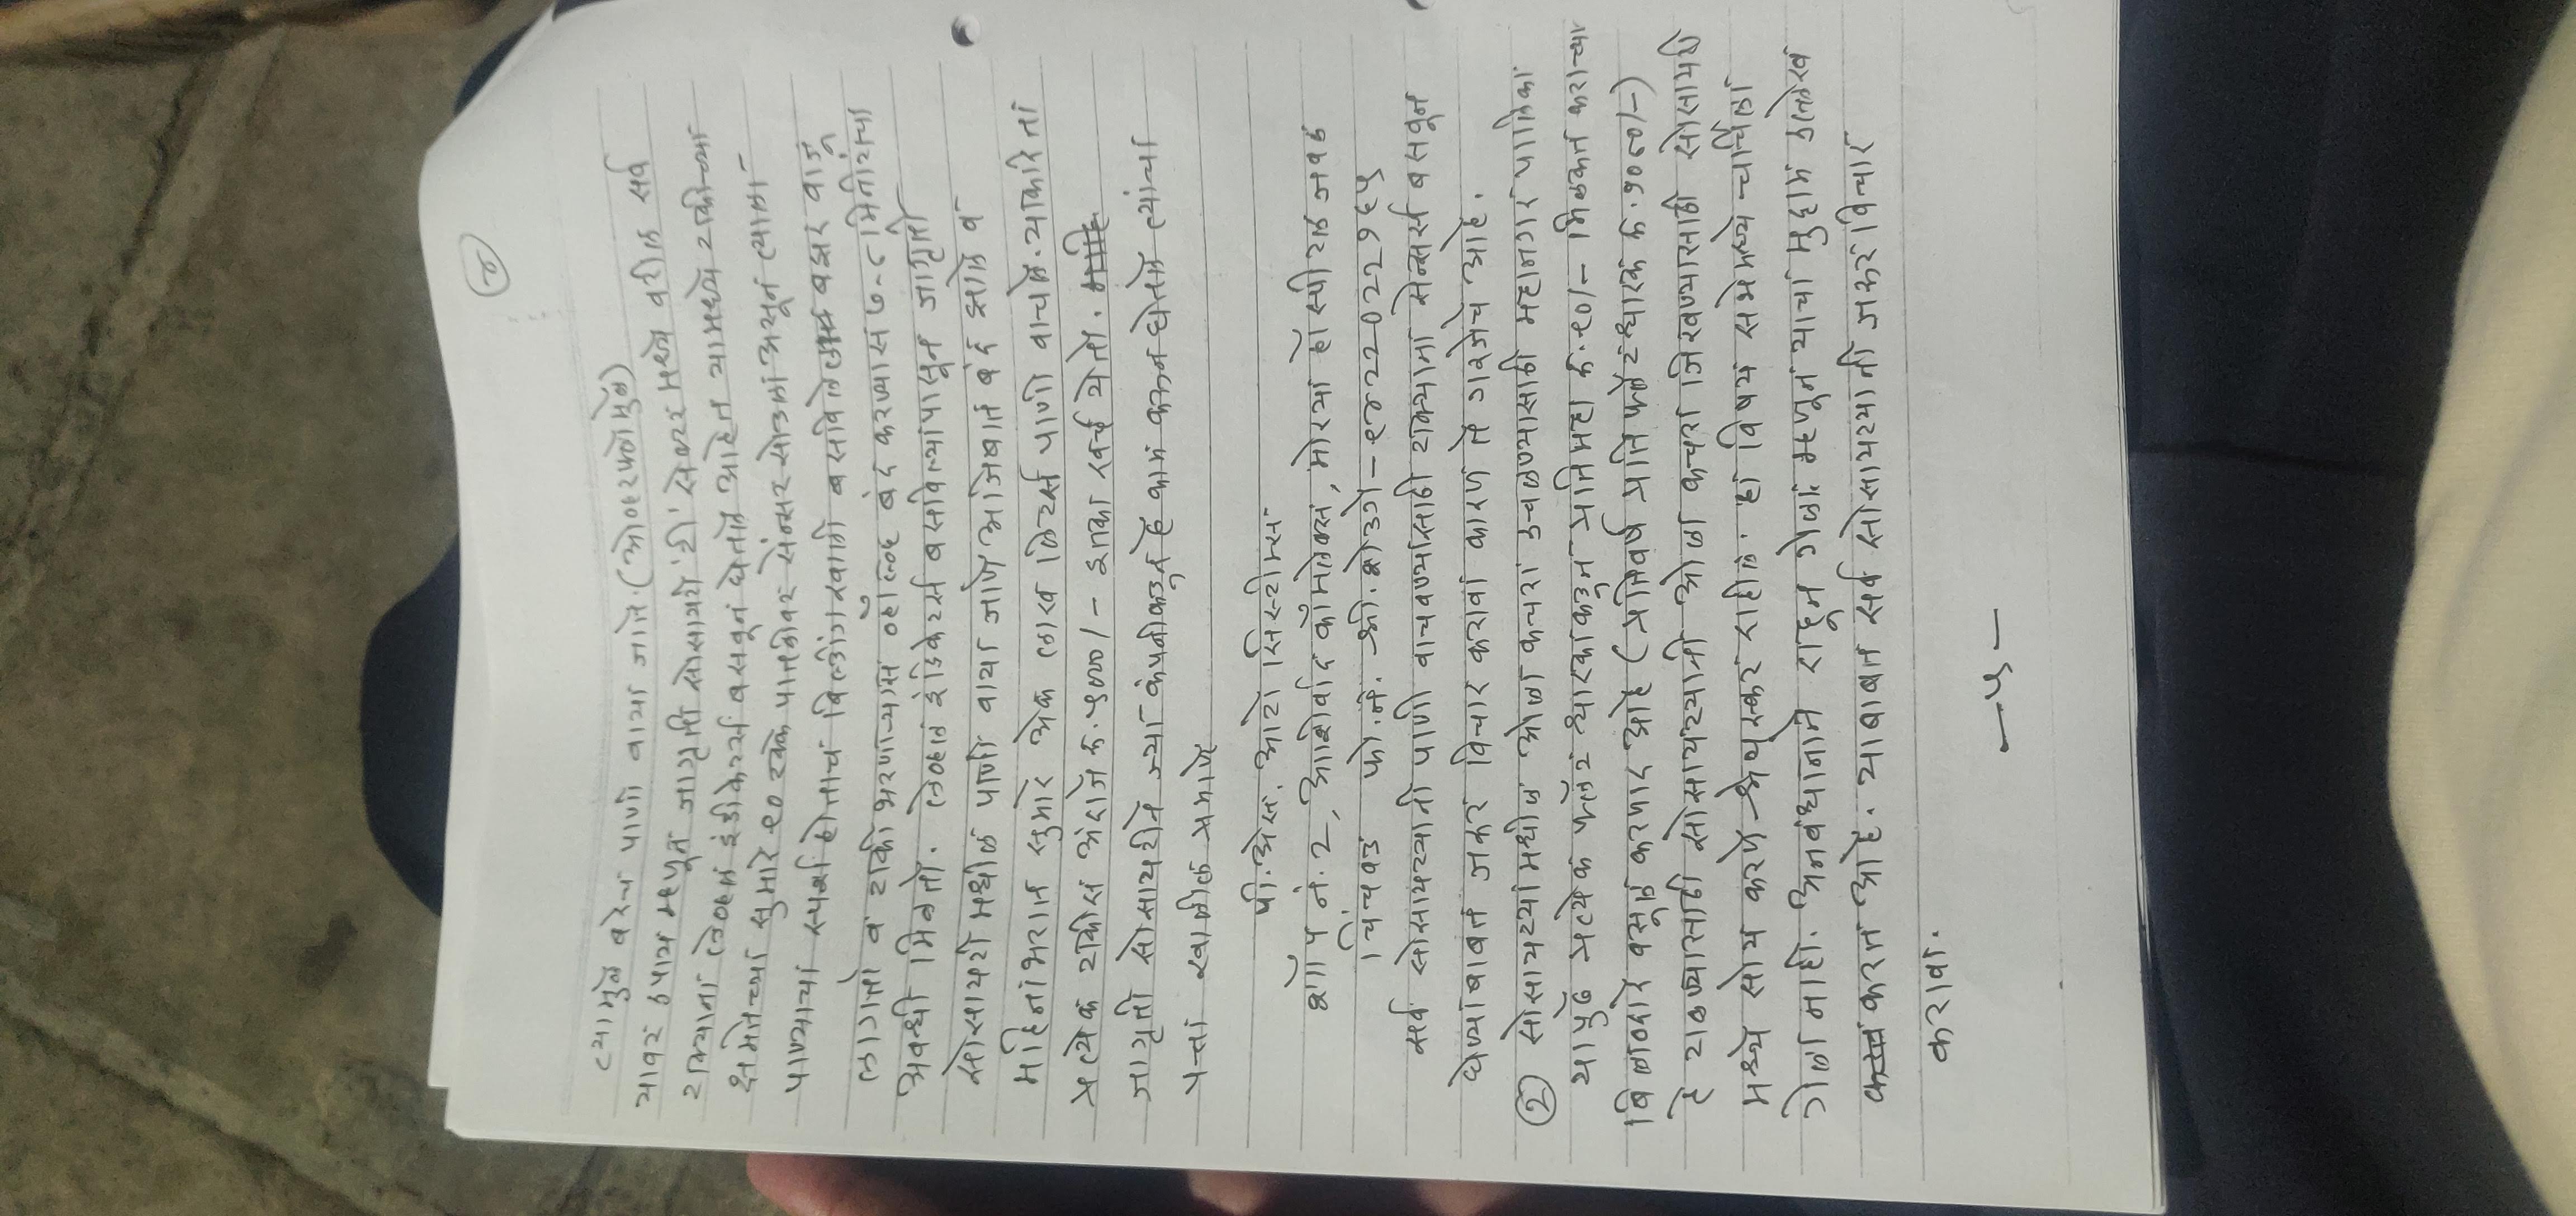 ४
त्यामुळे बरेच पाणी वाया जाते. (ओव्हरफ्लोमुळे)
यावर उपाय म्हणून जागृती सोसायटी 'टी' सेक्टर मध्ये वरील सर्व
टाक्यांना लेव्हल इंडीकेटर्स बसवून घेतले आहेत यामध्ये टाकीच्या
क्षमतेच्या सुमारे ९० टक्के पातळीवर सेंन्सर सोडला असून त्याला
पाण्याचा स्पर्श होताच बिल्डींगखाली बसविलेला बझर वाजू
लागतो व टाकी भरणाऱ्यास व्हॉल्व्ह बंद करण्यास ७-८ मिनीटांचा
अवधी मिळतो. लेव्हल इंडिकेटर्स बसविल्यापासून जागृती
सोसायटी मधील पाणी वाया जाणे अजिबात बंद झाले व
महिनाभरात सुमारे अेक लाख लिटर्स पाणी वाचले. याकरिता
प्रत्येक टाकीस अंदाजे रु. ५०००/- इतका खर्च येतो.
जागृती सोसायटीने ज्या कंपनीकडून हे काम करून घेतले त्यांचा
पत्ता खालील प्रमाणे
पी. अेस. आटो सिस्टीम्स
शॉप नं. 2, आशीर्वाद कॉम्प्लेक्स, मोरया हॉस्पीटल जवळ
चिंचवड फो. नं. श्री. शेडगे - ९४२२०२२१६५
सर्व सोसायट्यानी पाणी वाचवण्यासाठी टाक्याना सेन्सर्स बसवून
घेण्याबाबत जरूर विचार करावा कारण ते गरजेचे आहे.
② सोसायट्यामधील ओला कचरा उचलण्यासाठी महानगर पालिका
यापुढे प्रत्येक फ्लॅट धारकाकडून प्रतिमहा रु. ९०/- मिळकत कराच्या
बिलाव्दारे वसूल करणार आहे (प्रतिवर्ष प्रति फ्लॅटधारक रु. १०८०/-)
हे टाळण्यासाठी सोसायट्यानी ओला कचरा जिरवण्यासाठी सोसायटी
मध्ये सोय करणे श्रेयस्कर राहील. हा विषय सभेमध्ये चर्चिला
गेला नाही. अनवधानाने राहून गेला म्हणून याचा मुद्दाम उल्लेख
करत आहे. याबाबत सर्व सोसायट्यानी जरूर विचार
करावा.
—५—